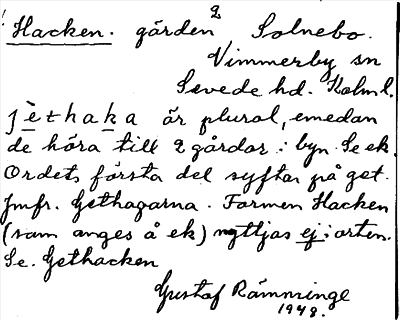 Hacken. gården 2 Solnebo.
Vimmerby sn
Sevede hd. Kalml.
jèthaka är plural, emedan
de höra till 2 gårdar i byn. Se ek.
Ordets första del syftar på get.
Jmfr. Gethagarna. Formen Hacken
(som anges å ek) nyttjas ej i orten.
Se. Gethacken
Gustaf Rämminge
1948.